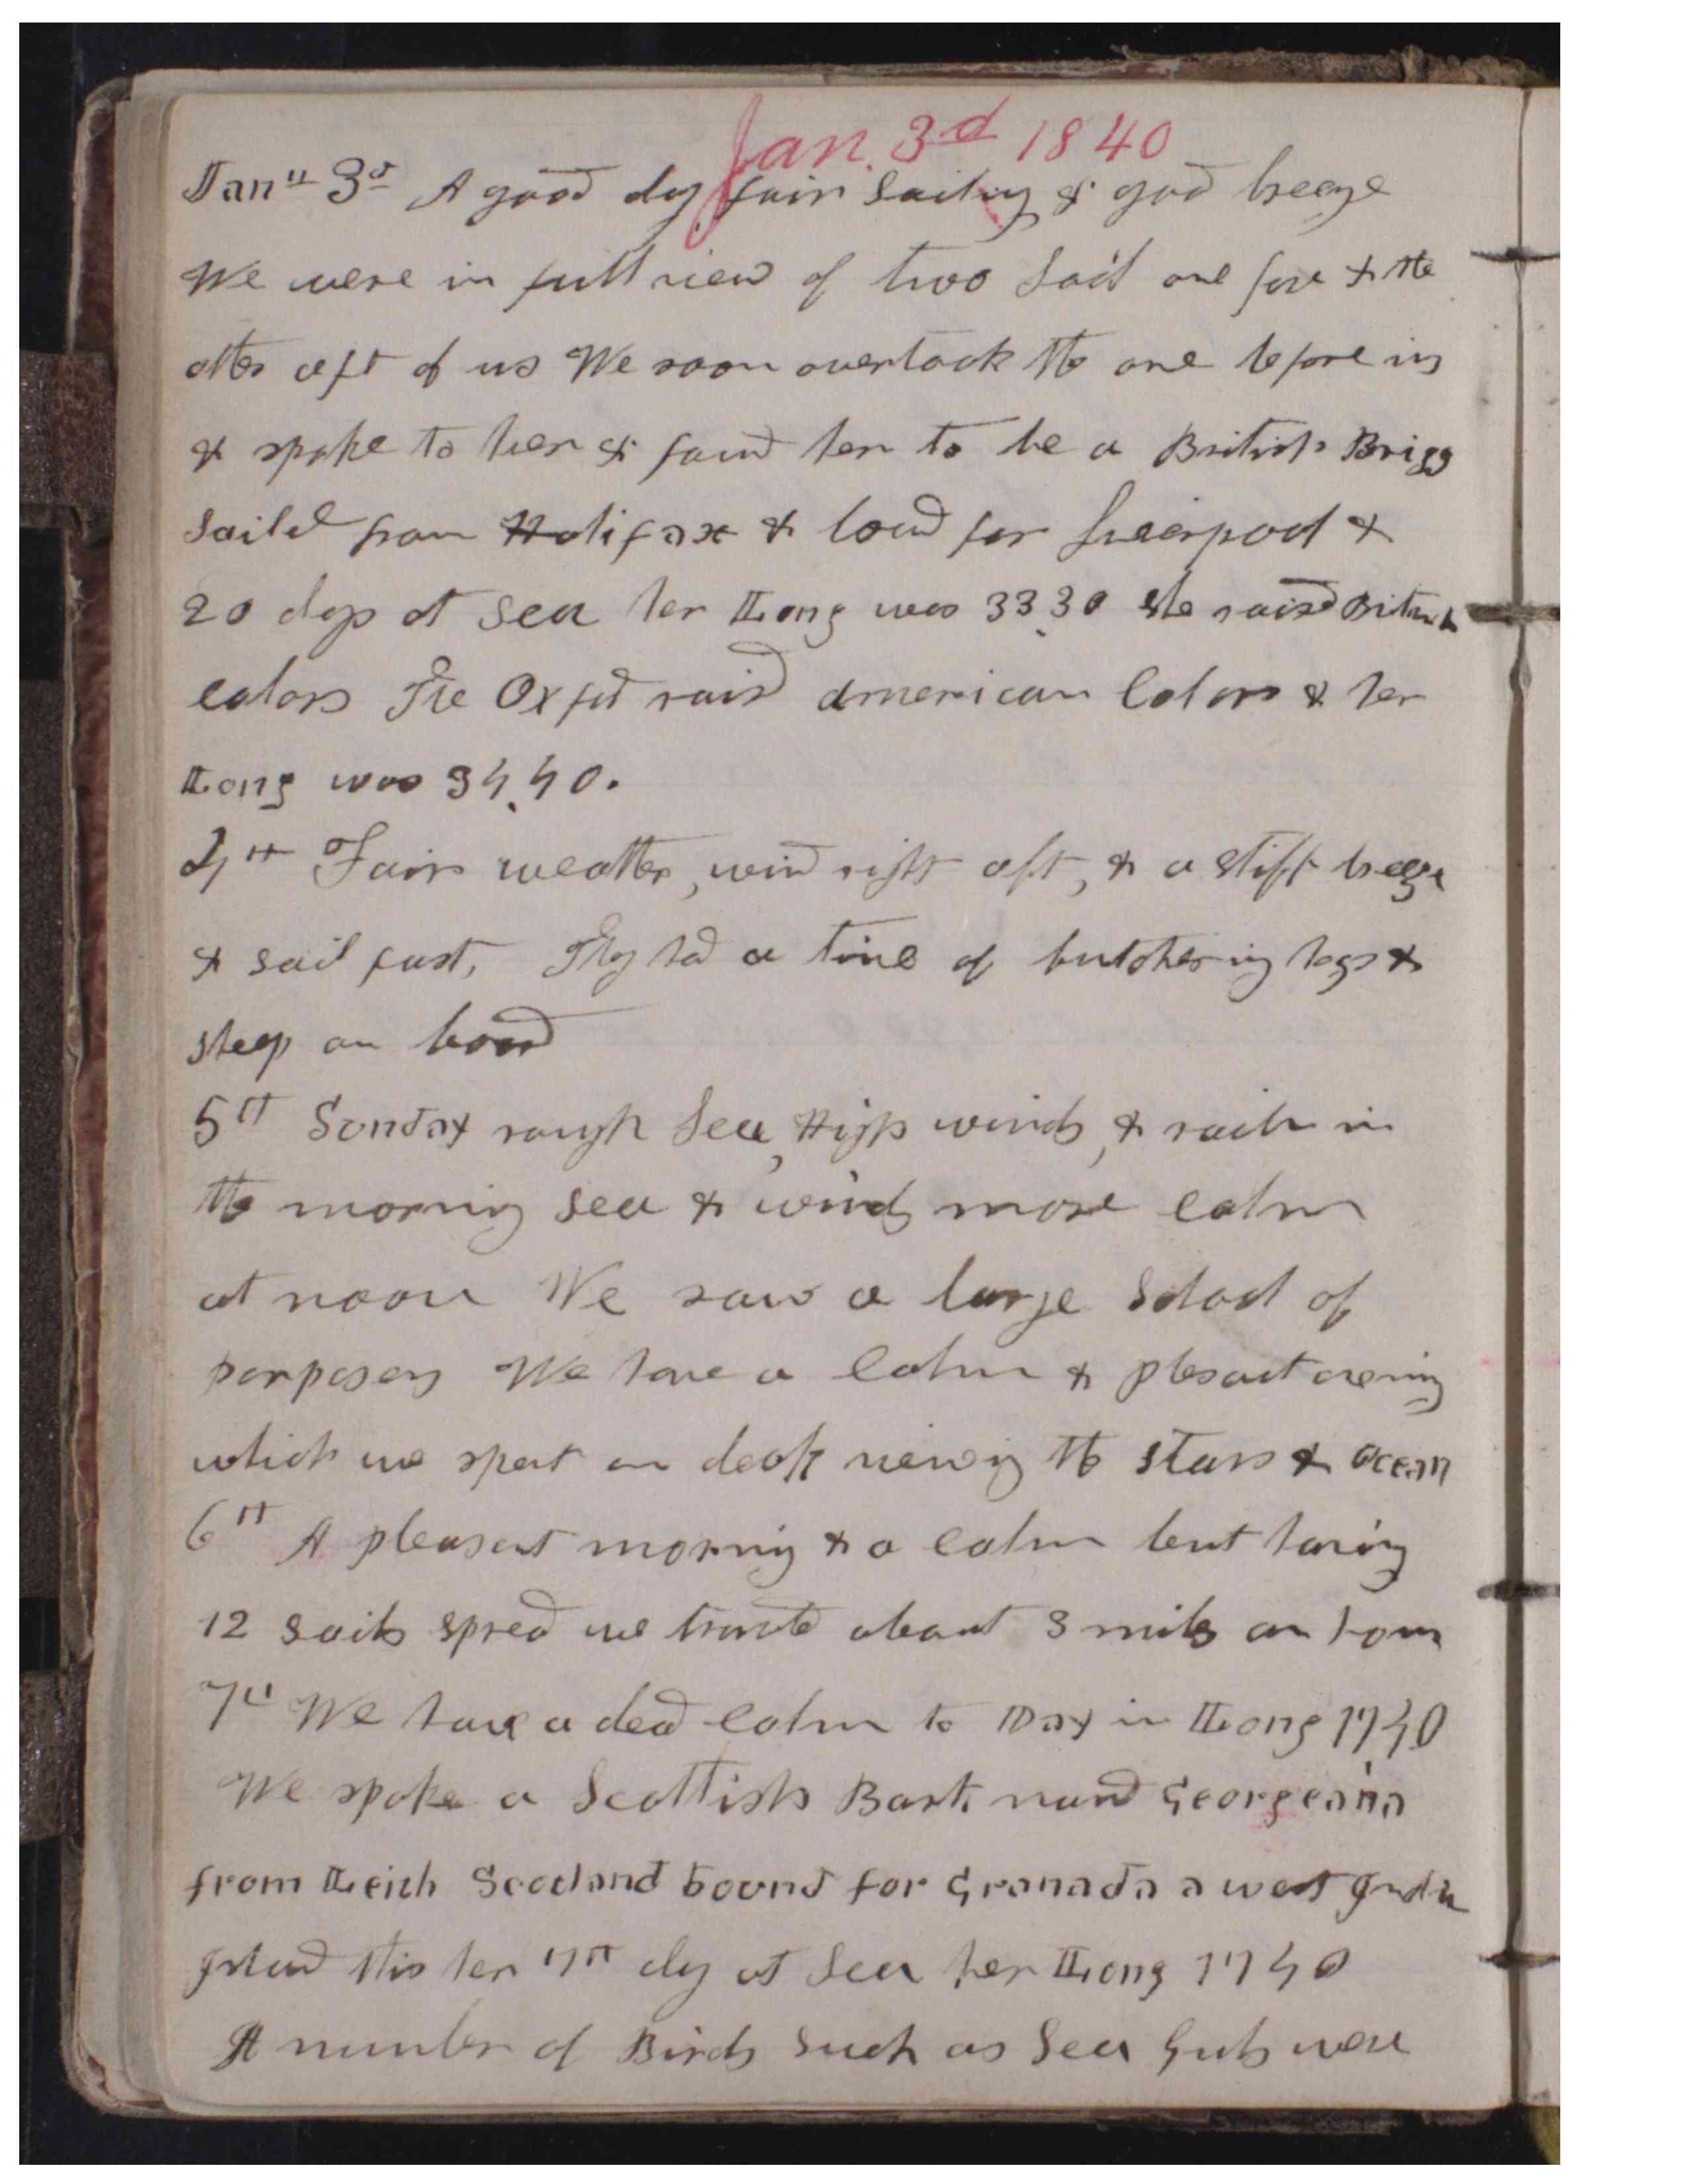 Jan. 3d 1840
Jany 3d A good day fair Sailing & good breeze
We were in full view of two Sail one fore & the
other aft of us We soon overtook the one before us
& spoke to her & found her to be a British Brigg
Sailed from Halifax & bound for Liverpool &
20 days at Sea her Long was 33.30 She raised British
colors The Oxford raised American Colors & her
Long was 34.40.
4th Fair weather, wind right aft, & a stiff breeze
& sail fast, They had a time of butchering hogs &
sheep on board
5th Sunday rough Sea, High winds, & rain in
the morning Sea & winds more calm
at noon We saw a large School of
porposes We have a Calm & plesant evening
which we spent on deck viewing the stars & Ocean
6th A pleasant morning & a calm but having
12 sails spread we traveled about 3 miles an hour
7th We have a dead calm to Day in Long 17.40
We spoke a Scottish Bark named Georgeana
from Leith Scotland bound for Granada a west India
Island this her 17th day at Sea her Long 17 40
A number of Birds Such as Sea Gulls were